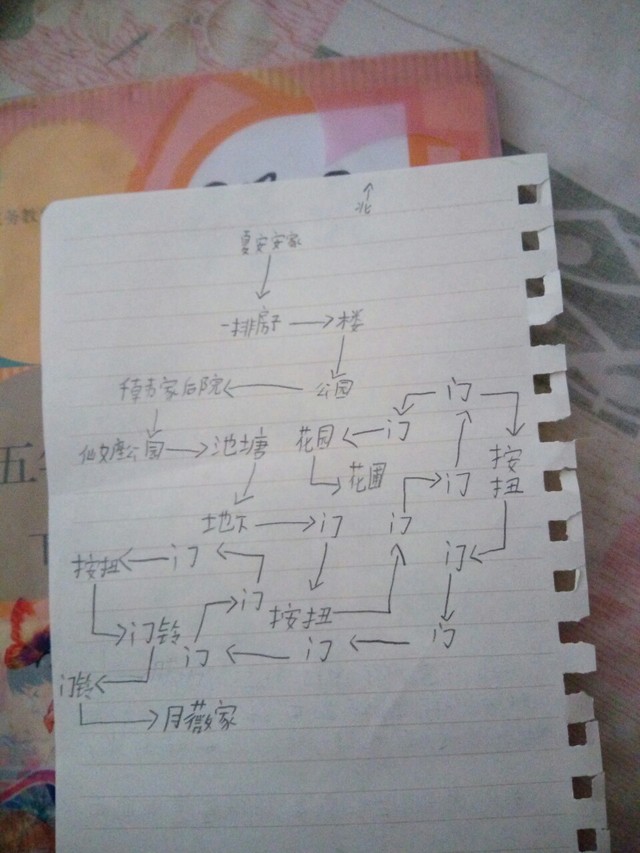 北
夏安安家
一排房子 楼
千韩家后院 公园
门
仙女座公园 池塘 花园 门
花圃 门 按扭
地下 门 门
按扭 门 门
门 按扭
门铃 门 门 门
门铃
月薇家
务教
五